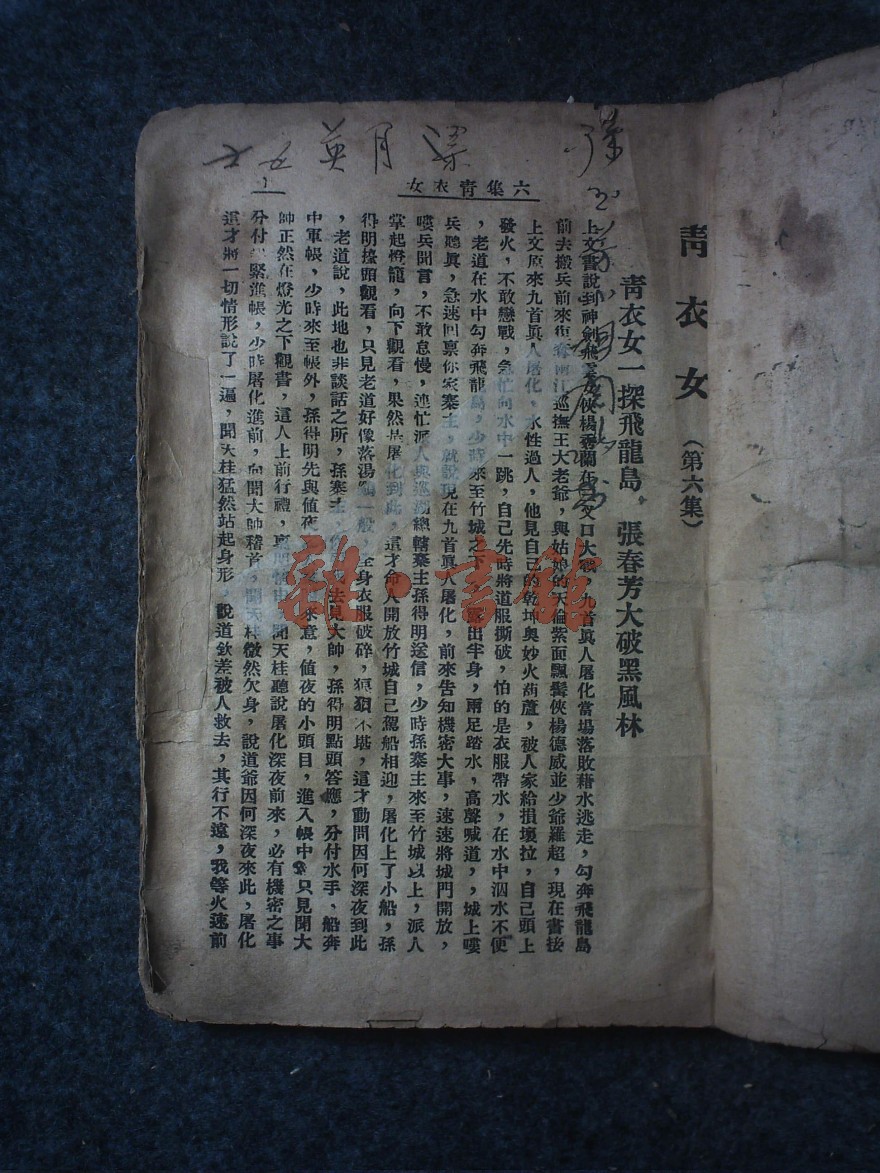 青衣女（第六集）
青衣女一探飛龍島，張春芳大破黑風林
六集青衣女
梁月英
上文書說到神劍飛 女俠楊 蘭在 口大戰，九首眞人屠化當塲落敗藉水逃走，勾奔飛龍島
前去搬兵前來復奪 江巡撫王大老爺，與姑娘的天倫紫面飄髯俠楊德威並少爺羅超，現在書接
上文原來九首眞人屠化，水性過人，他見自己的乾坤奧妙火葫蘆，被人家給損壞拉，自己頭上
發火，不敢戀戰，急忙向水中一跳，自己先時將道服撕破，怕的是衣服帶水，在水中泅水不便
，老道在水中勾奔飛龍島，少時來至竹城之下， 出半身，兩足踏水，高聲喊道，，城上嘍
兵聽眞，急速回禀你家寨主，就說現在九首眞人屠化，前來告知機密大事，速速將城門開放，
嘍兵聞言，不敢怠慢，連忙派人與巡 總轄寨主孫得明送信，少時孫寨主來至竹城以上，派人
掌起燈籠，向下觀看，果然是屠化到此，這才命人開放竹城自己駕船相迎，屠化上了小船，孫
得明擡頭觀看，只見老道好像落湯 一般，全身衣服破碎，狼狽不堪，這才動問因何深夜到此
，老道說，此地也非談話之所，孫寨主， 去見大帥，孫得明點頭答應，分付水手，船奔
中軍帳，少時來至帳外，孫得明先與値夜 來意，値夜的小頭目，進入帳中，只見聞大
帥正然在燈光之下觀書，這人上前行禮，禀明情由，聞天桂聽說屠化深夜前來，必有機密之事
分付 緊進帳，少時屠化進前，向聞大帥稽首，聞天桂微然欠身，說道爺因何深夜來此，屠化
這才將一切情形說了一遍，聞天桂猛然站起身形，說道欽差被人救去，其行不遠，我等火速前
雜·書館